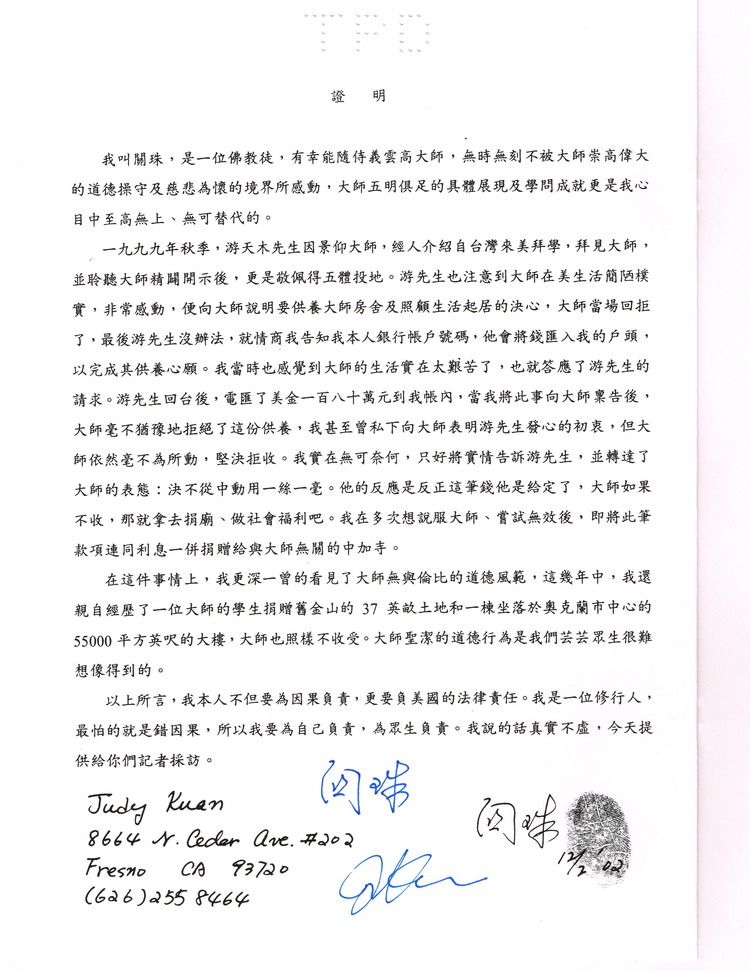 TPD
證 明
我叫關珠，是一位佛教徒，有幸能隨侍義雲高大師，無時無刻不被大師崇高偉大
的道德操守及慈悲為懷的境界所感動，大師五明俱足的具體展現及學問成就更是我心
目中至高無上、無可替代的。
一九九九年秋季，游天木先生因景仰大師，經人介紹自台灣來美拜學，拜見大師，
並聆聽大師精闢開示後，更是敬佩得五體投地。游先生也注意到大師在美生活簡陋樸
實，非常感動，便向大師說明要供養大師房舍及照顧生活起居的決心，大師當場回拒
了，最後游先生沒辦法，就情商我告知我本人銀行帳戶號碼，他會將錢匯入我的戶頭，
以完成其供養心願。我當時也感覺到大師的生活實在太艱苦了，也就答應了游先生的
請求。游先生回台後，電匯了美金一百八十萬元到我帳內，當我將此事向大師稟告後，
大師毫不猶豫地拒絕了這份供養，我甚至曾私下向大師表明游先生發心的初衷，但大
師依然毫不為所動，堅決拒收。我實在無可奈何，只好將實情告訴游先生，並轉達了
大師的表態：決不從中動用一絲一毫。他的反應是反正這筆錢他是給定了，大師如果
不收，那就拿去捐廟、做社會福利吧。我在多次想說服大師、嘗試無效後，即將此筆
款項連同利息一併捐贈給與大師無關的中加寺。
在這件事情上，我更深一曾的看見了大師無與倫比的道德風範，這幾年中，我還
親自經歷了一位大師的學生捐贈舊金山的 37 英畝土地和一棟坐落於奧克蘭市中心的
55000 平方英呎的大樓，大師也照樣不收受。大師聖潔的道德行為是我們芸芸眾生很難
想像得到的。
以上所言，我本人不但要為因果負責，更要負美國的法律責任。我是一位修行人，
最怕的就是錯因果，所以我要為自己負責，為眾生負責。我說的話真實不虛，今天提
供給你們記者採訪。
关珠
Judy Kuan
8664 N. Cedar Ave. #202
Fresno CA 93720
(626) 255 8464
关珠
12/2 '02